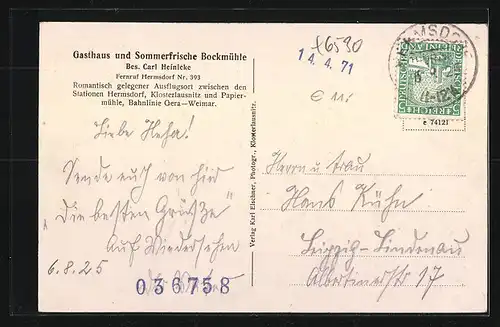 Gasthaus und Sommerfrische Bockmühle
Bes. Carl Heinicke
Fernruf Hermsdorf Nr. 393
Romantisch gelegener Ausflugsort zwischen den
Stationen Hermsdorf, Klosterlausnitz und Papier-
mühle, Bahnlinie Gera—Weimar.
+6590
14. 4. 71
HERMSDORF
DEUTSCHES REICH
c 74121
Verlag Karl Elschner, Photogr., Klosterlausnitz.
Liebe
Sende euch von hier
die besten Grüße
Auf Wiedersehen
6.8.25
036758
Herrn u Frau
Hans Kühn
Leipzig-Lindenau
Albertinerstr 17